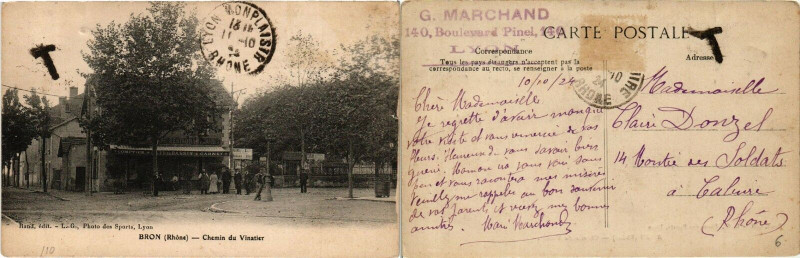 LYON MONPLAISIR
13 15
11-10
24
RHONE
T
Banf, édit. - L.-G., Photo des Sports, Lyon
BRON (Rhône) — Chemin du Vinatier
G. MARCHAND
140, Boulevard Pinel, 140
LYON
CARTE POSTALE
Correspondance
Tous les pays étrangers n'acceptent pas la
correspondance au recto, se renseigner à la poste
Adresse
T
10/10/24
Chère Mademoiselle
Je regrette d'avoir manqué
votre visite et vous remercie de vos
fleurs. Heureux de vous savoir bien
guérie. Maman ira vous voir sous
peu et vous racontera mes misères
Veuillez me rappeler au bon souvenir
de vos parents et recevez mes bonnes
amitiés. Marchand
Mademoiselle
Claire Donzel
14 Montée des Soldats
à Caluire
(Rhône)
6